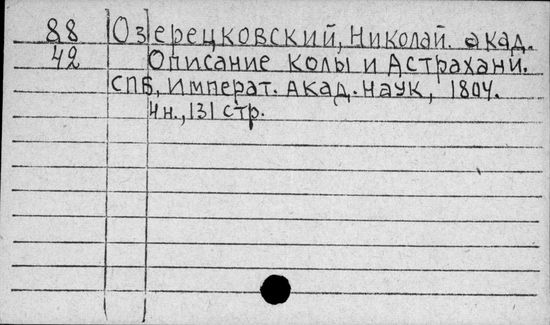 88 Озерецковский, Николай. акад.
42 Описание Колы и Астрахани.
СПБ, Императ. Акад. наук, 1804.
4н., 131 стр.